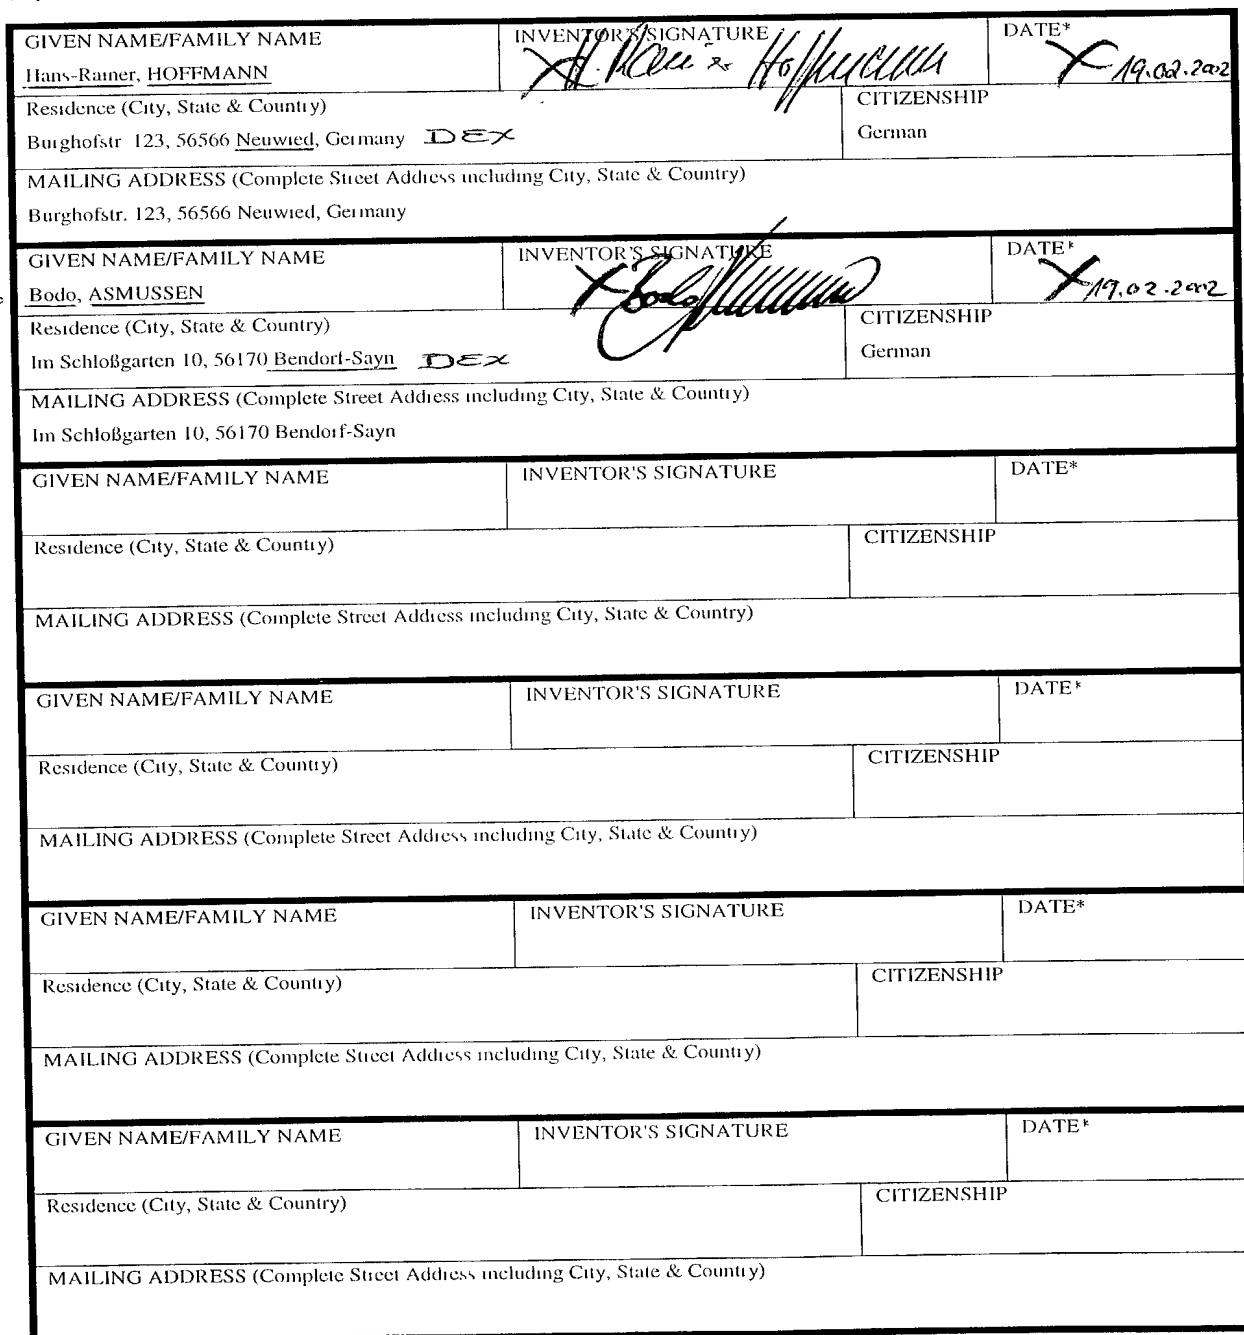 GIVEN NAME/FAMILY NAME INVENTOR'S SIGNATURE DATE*
Hans-Rainer, HOFFMANN H. Rainer Hoffmann 19.02.2002
Residence (City, State & Country) CITIZENSHIP
Burghofstr 123, 56566 Neuwied, Germany DEX German
MAILING ADDRESS (Complete Street Address including City, State & Country)
Burghofstr. 123, 56566 Neuwied, Germany
GIVEN NAME/FAMILY NAME INVENTOR'S SIGNATURE DATE*
Bodo, ASMUSSEN Bodo 19.02.2002
Residence (City, State & Country) CITIZENSHIP
Im Schloßgarten 10, 56170 Bendorf-Sayn DEX German
MAILING ADDRESS (Complete Street Address including City, State & Country)
Im Schloßgarten 10, 56170 Bendorf-Sayn
GIVEN NAME/FAMILY NAME INVENTOR'S SIGNATURE DATE*
Residence (City, State & Country) CITIZENSHIP
MAILING ADDRESS (Complete Street Address including City, State & Country)
GIVEN NAME/FAMILY NAME INVENTOR'S SIGNATURE DATE*
Residence (City, State & Country) CITIZENSHIP
MAILING ADDRESS (Complete Street Address including City, State & Country)
GIVEN NAME/FAMILY NAME INVENTOR'S SIGNATURE DATE*
Residence (City, State & Country) CITIZENSHIP
MAILING ADDRESS (Complete Street Address including City, State & Country)
GIVEN NAME/FAMILY NAME INVENTOR'S SIGNATURE DATE*
Residence (City, State & Country) CITIZENSHIP
MAILING ADDRESS (Complete Street Address including City, State & Country)